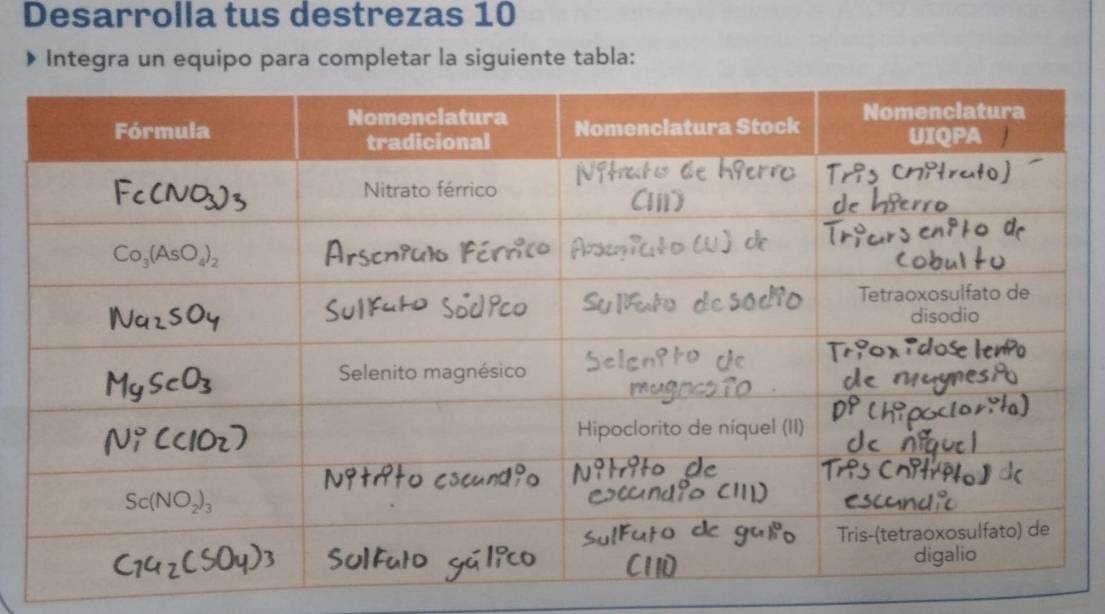 Desarrolla tus destrezas 10
Integra un equipo para completar la siguiente tabla:
Fórmula
Nomenclatura
tradicional
Nomenclatura Stock
Nomenclatura
UIQPA
Fe(NO3)3
Nitrato férrico
Nitrato de hierro
(III)
Tris (nitrato)
de hierro
Co₃(AsO₄)₂
Arseniato Férrico
Arseniato (V) de
Triarsenito de
cobalto
Na2SO4
Sulfato Sódico
Sulfato de sodio
Tetraoxosulfato de
disodio
MgSeO3
Selenito magnésico
Selenito de
magnesio
Trioxidoselenio
de magnesio
Ni (ClO2)
Hipoclorito de níquel (II)
Di (hipoclorito)
de niquel
Sc(NO₂)₃
Nitrito escandio
Nitrito de
escandio (III)
Tris (nitrito) de
escandio
Ga2(SO4)3
Sulfato gálico
Sulfato de galio
(III)
Tris-(tetraoxosulfato) de
digalio